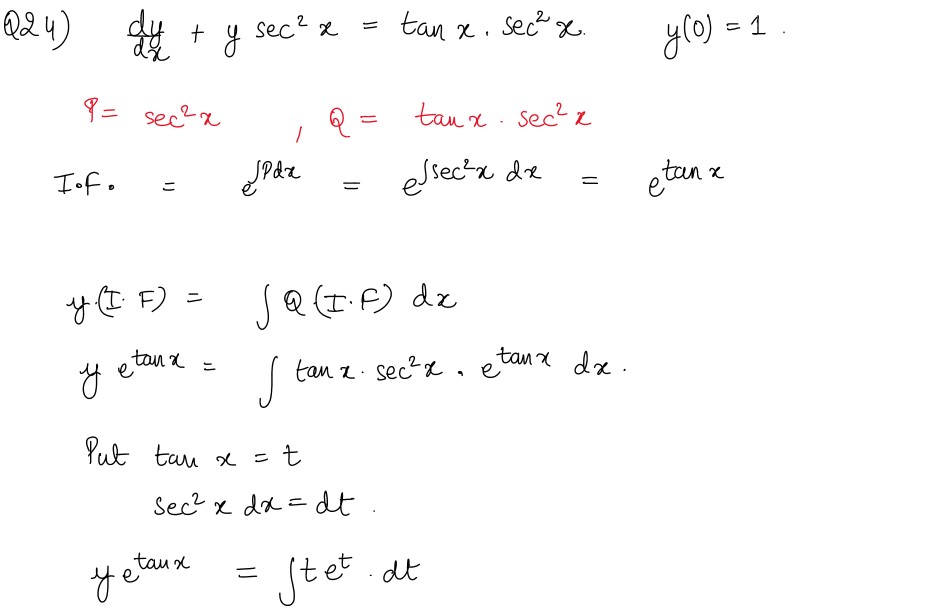 Q24) dy/dx + y sec² x = tan x . sec² x. y(0) = 1 .
P = sec² x , Q = tan x . sec² x
I.F. = e^∫Pdx = e^∫sec²x dx = e^tan x
y.(I.F) = ∫ Q (I.F) dx
y e^tan x = ∫ tan x . sec² x . e^tan x dx .
Put tan x = t
sec² x dx = dt .
y e^tan x = ∫ t e^t . dt